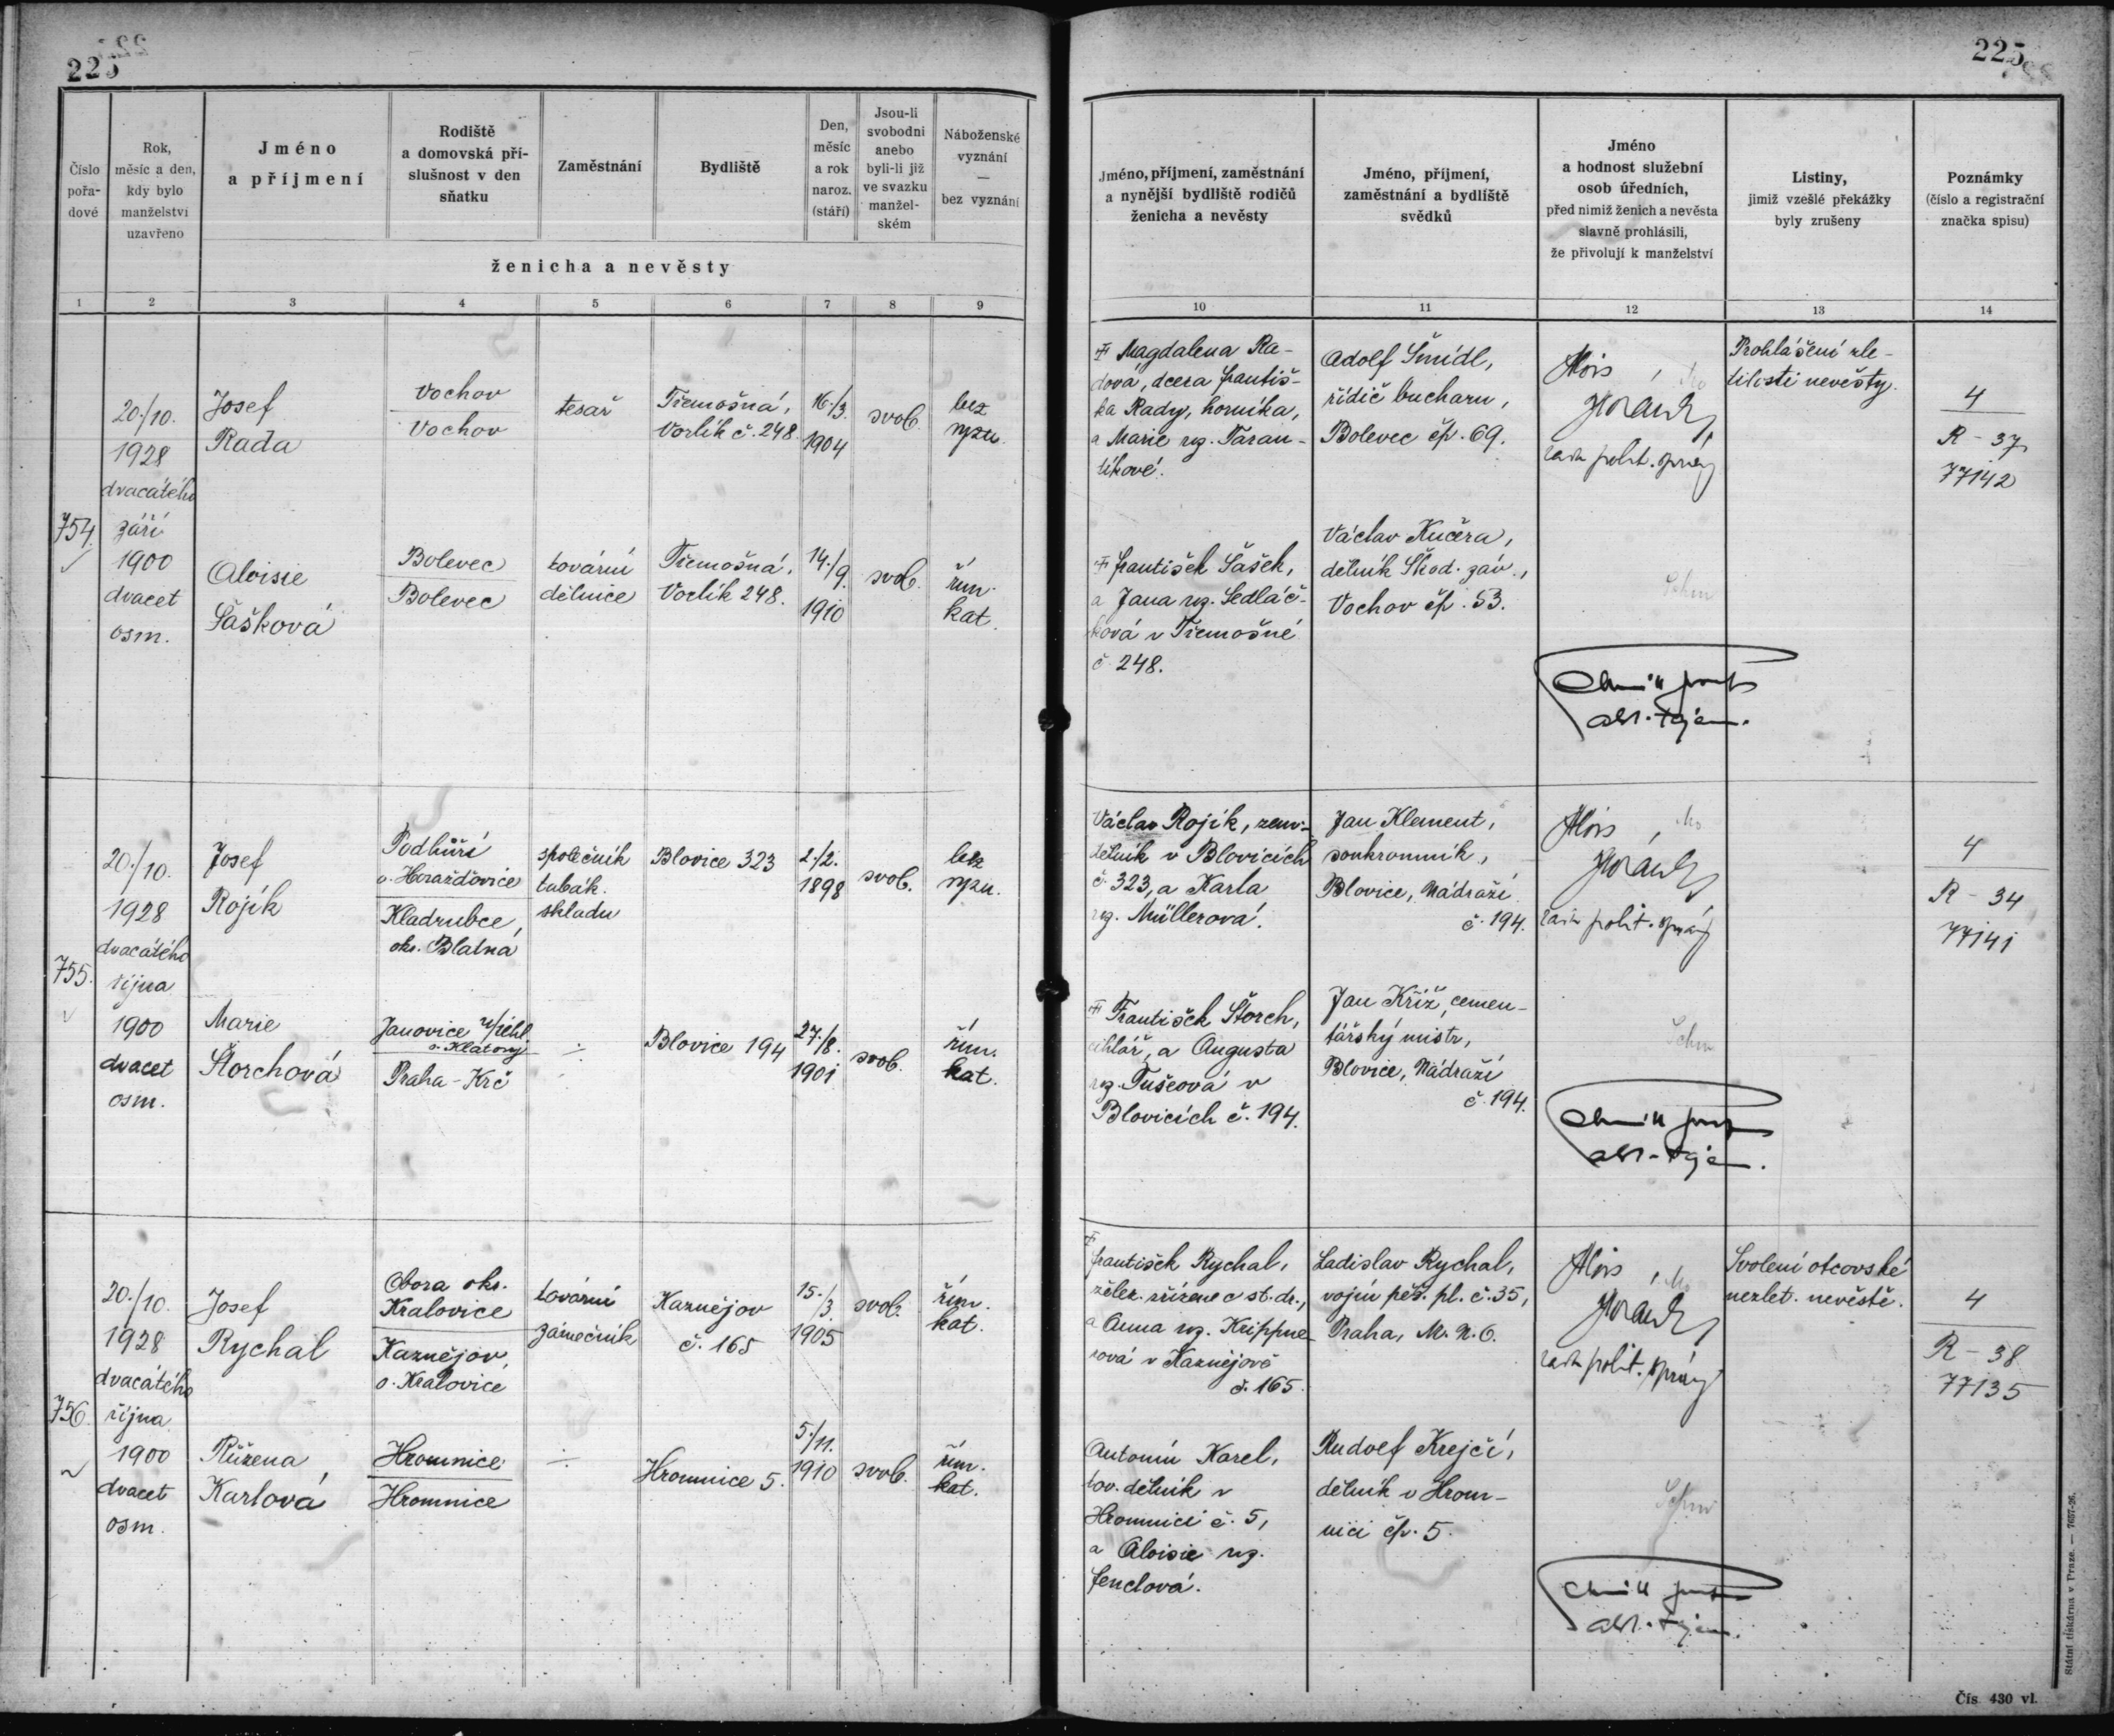 225
225
Číslo
pořa-
dové
Rok,
měsíc a den,
kdy bylo
manželství
uzavřeno
Jméno
a příjmení
Rodiště
a domovská pří-
slušnost v den
sňatku
Zaměstnání
Bydliště
Den,
měsíc
a rok
naroz.
(stáří)
Jsou-li
svobodni
anebo
byli-li již
ve svazku
manžel-
ském
Náboženské
vyznání
—
bez vyznání
ženicha a nevěsty
Jméno, příjmení, zaměstnání
a nynější bydliště rodičů
ženicha a nevěsty
Jméno, příjmení,
zaměstnání a bydliště
svědků
Jméno
a hodnost služební
osob úředních,
před nimiž ženich a nevěsta
slavně prohlásili,
že přivolují k manželství
Listiny,
jimiž vzešlé překážky
byly zrušeny
Poznámky
(číslo a registrační
značka spisu)
1 2 3 4 5 6 7 8 9 10 11 12 13 14
754.
20./10.
1928
dvacátého
září
1900
dvacet
osm.
Josef
Rada
Vochov
Vochov
tesař
Třemošná,
Vorlík č. 248.
16./3.
1904
svob.
bez
vyzn.
Aloisie
Šašková
Bolevec
Bolevec
tovární
dělnice
Třemošná,
Vorlík 248.
14./9.
1910
svob.
řím.
kat.
Magdalena Ra-
dová, dcera Františ-
ka Rady, horníka,
a Marie roz. Taran-
tíkové.
František Šašek,
a Jana roz. Sedláč-
ková v Třemošné
č. 248.
Adolf Šmídl,
řidič bucharu,
Bolevec čp. 69.
Václav Kučera,
dělník Škod. záv.,
Vochov čp. 53.
Alois
Horák
rada polit. správy
Prohlášení zle-
tilosti nevěsty.
4
R - 37
77142
755.
20./10.
1928
dvacátého
října
1900
dvacet
osm.
Josef
Rojík
Podhůří
o. Horažďovice
Kladrubce,
okr. Blatná
společník
tabák.
skladu
Blovice 323
2./2.
1898
svob.
bez
vyzn.
Marie
Štorchová
Janovice n/Úhl.
o. Klatovy
Praha - Krč
Blovice 194
27./8.
1901
svob.
řím.
kat.
Václav Rojík, zem-
dělník v Blovicích
č. 323, a Karla
roz. Müllerová.
František Štorch,
cihlář, a Augusta
roz. Tušcová v
Blovicích č. 194.
Jan Klement,
soukromník,
Blovice, Nádraží
č. 194.
Jan Kříž, cemen-
tářský mistr,
Blovice, Nádraží
č. 194.
Alois
Horák
rada polit. správy
4
R - 34
77141
756.
20./10.
1928
dvacátého
října
1900
dvacet
osm.
Josef
Rychal
Obora okr.
Kralovice
Kaznějov,
o. Kralovice
tovární
zámečník
Kaznějov
č. 165
15./3.
1905
svob.
řím.
kat.
Růžena
Karlová
Hromnice
Hromnice
Hromnice 5.
5./11.
1910
svob.
řím.
kat.
František Rychal,
želez. zřízenec st. dr.,
a Anna roz. Krippne-
rová v Kaznějově
č. 165.
Antonín Karel,
tov. dělník v
Hromnici č. 5,
a Aloisie roz.
Fenclová.
Ladislav Rychal,
vojín pěš. pl. č. 35,
Praha, M. N. O.
Rudolf Krejčí,
dělník v Hrom-
nici čp. 5.
Alois
Horák
rada polit. správy
Svolení otcovské
nezlet. nevěstě.
4
R - 38
77135
Státní tiskárna v Praze. — 7657-26.
Čís. 430 vl.